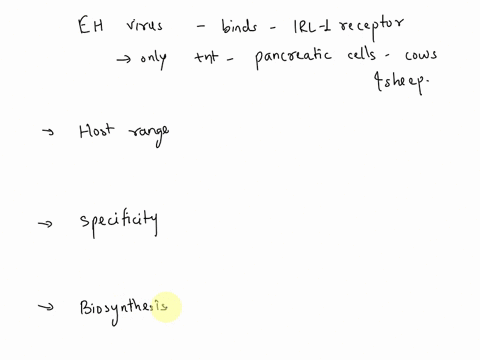 EH virus - binds - IRL-1 receptor
→ only tnt - pancreatic cells - cows
& sheep.
→ Host range
→ Specificity
→ Biosynthesis